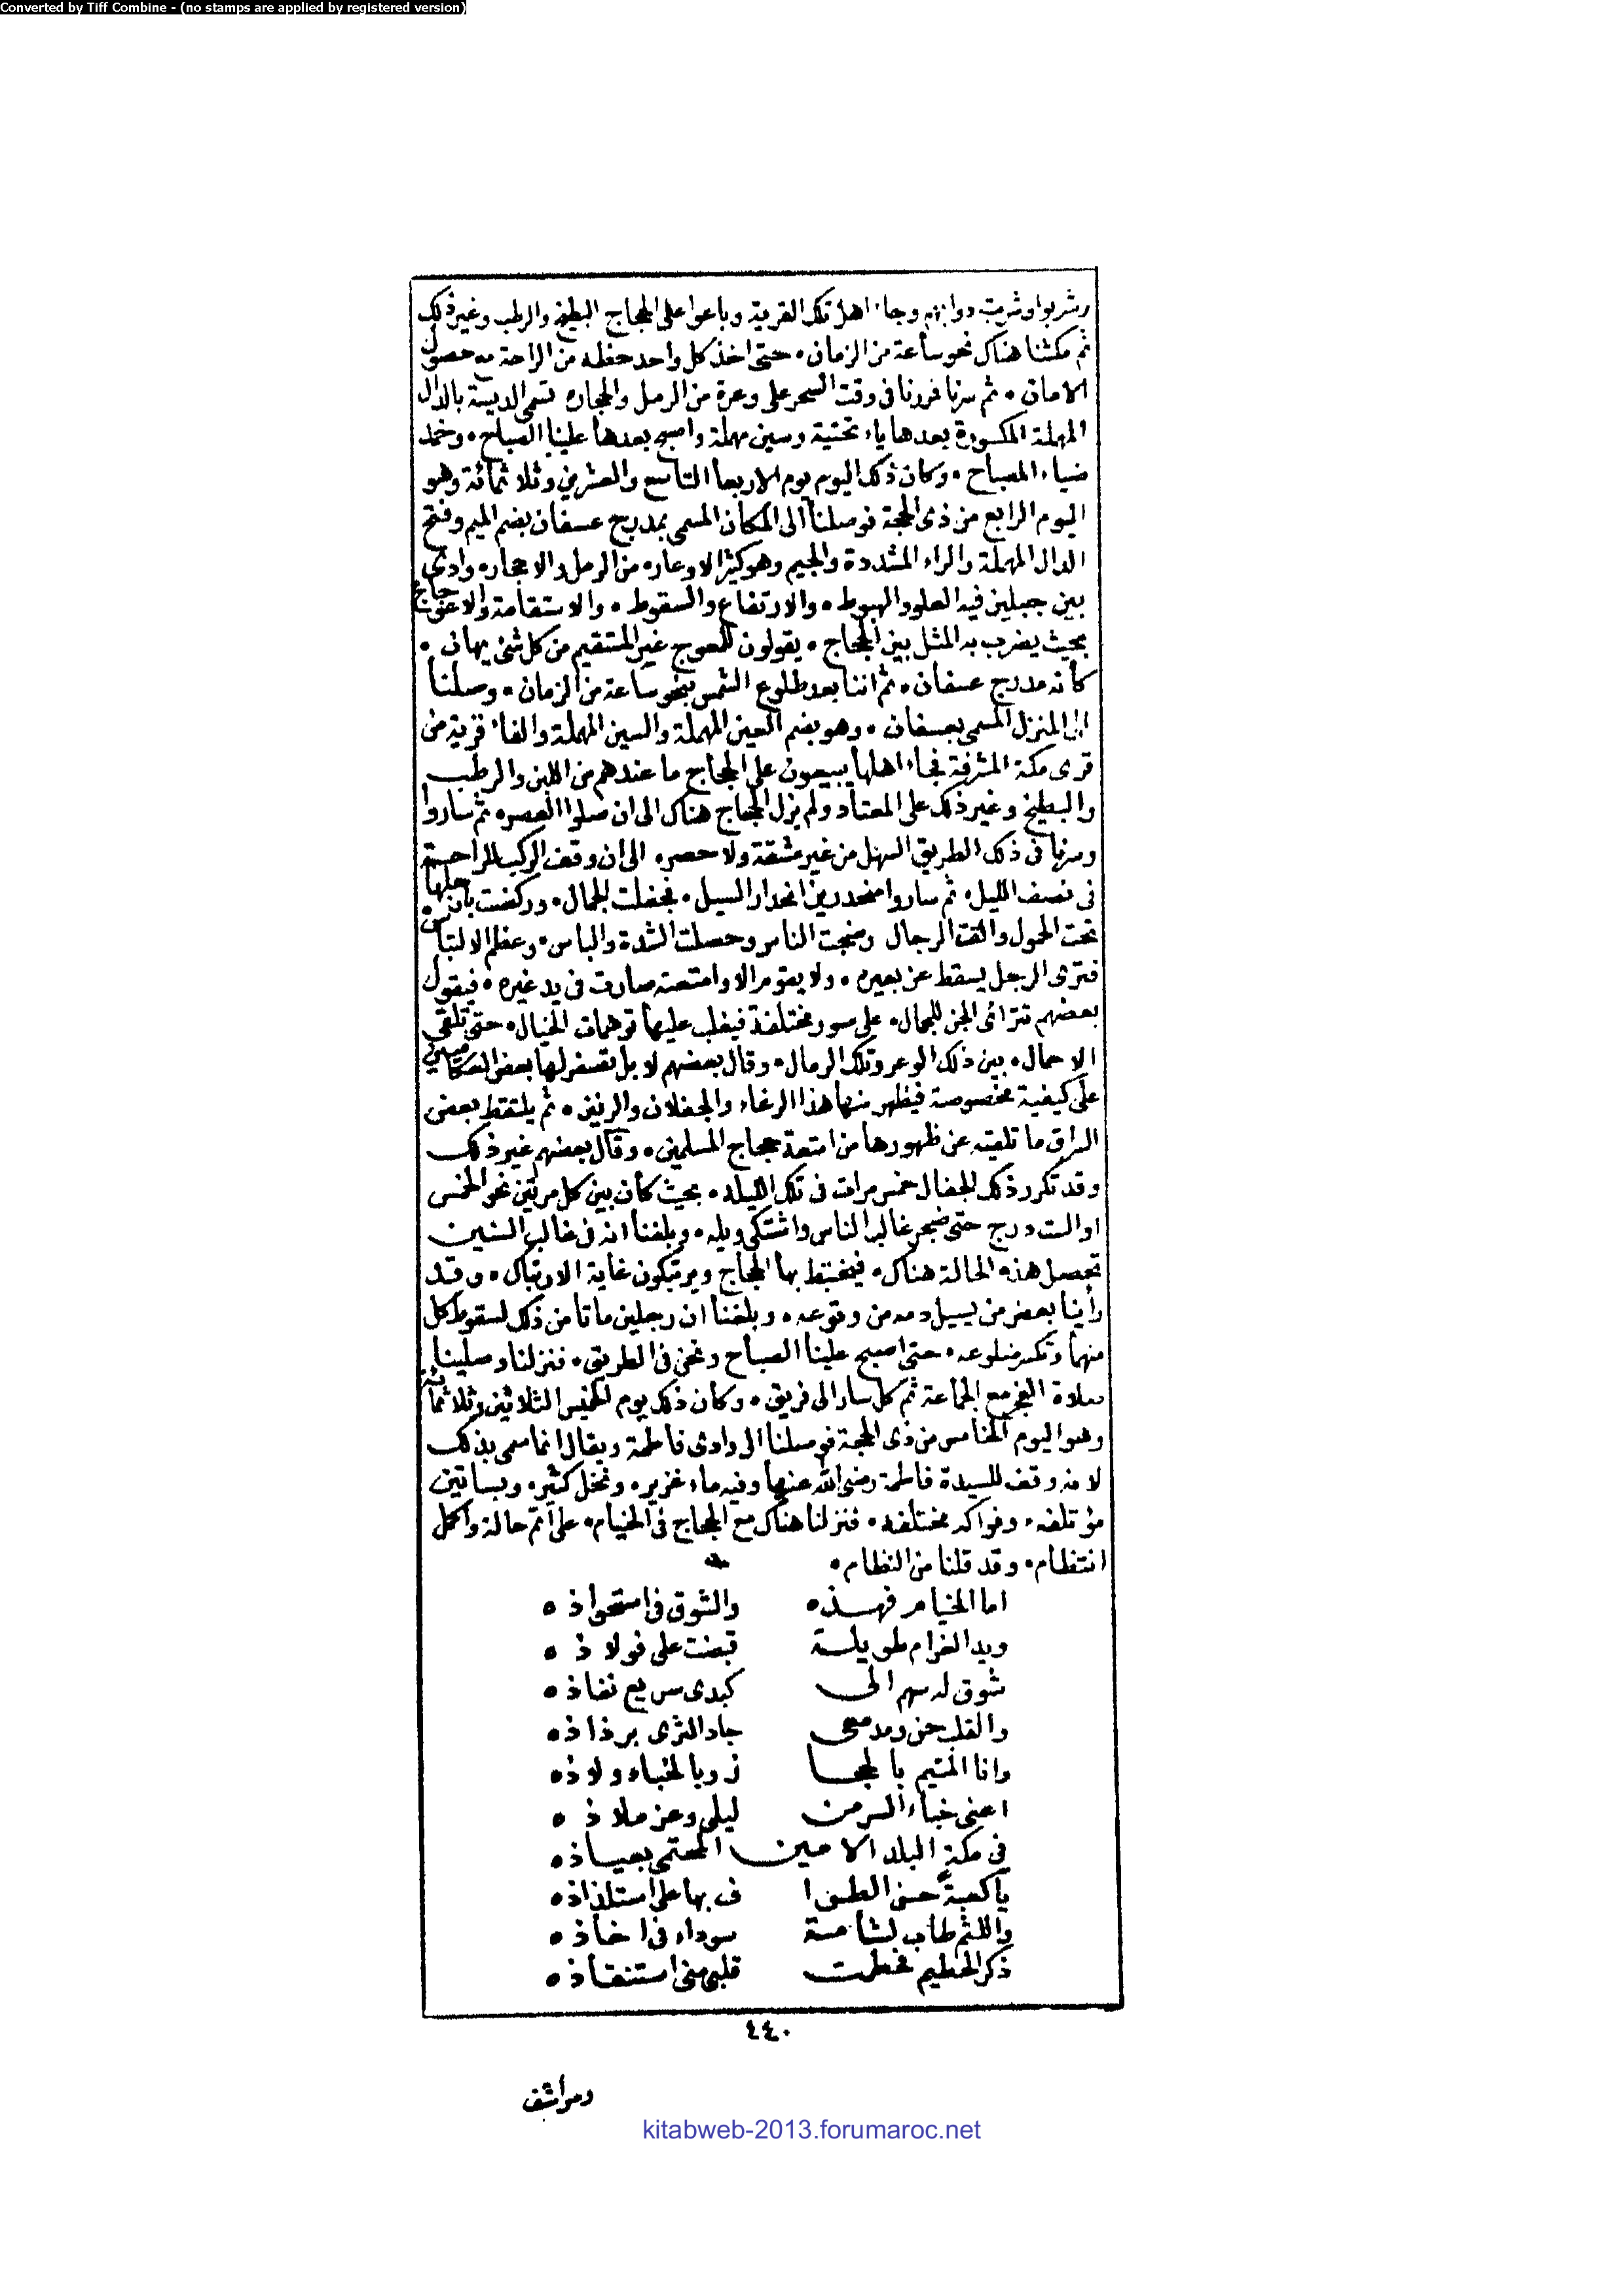 Converted by Tiff Combine - (no stamps are applied by registered version)
وشربوا وشربت دوابهم وجاء اهل تلك القرية وباعوا على الحجاج البطيخ والرطب وغير ذلك
ثم مكثنا هناك نحو ساعة من الزمان • حتى اخذ كل واحد حظه من الراحة مع حصول
الامان • ثم سرنا فمررنا فى وقت السحر على وعرة من الرمل والحجاره تسمى الديسة بالدال
المهملة المكسورة بعدها ياء تحتية وسين مهملة واصبح بعدها علينا الصباح • وخمد
ضياء المصباح • وكان ذلك اليوم يوم الاربعا التاسع والعشرين وثلاثمائة وهو
اليوم الرابع من ذى الحجة فوصلنا الى المكان المسمى بمدرج عسفان بضم الميم وفتح
الدال المهملة والراء المشددة والجيم وهو كثير الاوعار • من الرمل والاحجار • وادى
بين جبلين فيه العلو والهبوط • والارتفاع والسقوط • والاستقامة والاعوجاج
بحيث يضرب به المثل بين الحجاج • يقولون للمعوج غير المستقيم من كل شئ يهان •
كأنه مدرج عسفان • ثم اننا بعد طلوع الشمس بنحو ساعة من الزمان • وصلنا
الى المنزل المسمى بعسفان • وهو بضم العين المهملة والسين المهملة والفاء قرية من
قرى مكة المشرفة فجاء اهلها يبيعون على الحجاج ما عندهم من اللبن والرطب
والبطيخ وغير ذلك على المعتاد ولم يزل الحجاج هناك الى ان صلوا العصر • ثم ساروا
وسرنا فى ذلك الطريق السهل من غير مشقة ولا حصر • الى ان وقف الركب للراحة
فى نصف الليل • ثم ساروا منحدرين انحدار السيل • فجفلت الجمال • وركضت باحمالها
تحت الحمول والقت الرجال وضجت الناس وحصلت الشدة والباس • وعظم الالتباس •
فترى الرجل يسقط عن بعيره • ولا يقوم الا وامتعته صارت فى يد غيره • فيقول
بعضهم تترائى الجن للجمال • على صور مختلفة فيغلب عليها توهمات الخيال • حتى تلقى
الاحمال • بين ذلك الوعر وتلك الرمال • وقال بعضهم لا بل تصفر لها بعض العكامين
على كيفية مخصوصة فيظهر منها هذا الرغاء والجفلان والرنين • ثم يلتقط بعض
السراق ما تلقيه عن ظهورها من امتعة حجاج المسلمين • وقال بعضهم غير ذلك
وقد تكرر ذلك الجفال خمس مرات فى تلك الليله • بحيث كان بين كل مرتين نحو الخمس
او الست درج حتى ضجر غالب الناس واشتكى ويله • وبلغنا انه فى غالب السنين
تحصل هذه الحالة هناك • فيختبط بها الحجاج ويرتبكون غاية الارتباك • وقد
رأينا بعض من يسيل دمه من وقوعه • وبلغنا ان رجلين ماتا من ذلك لسقوط كل
منهما وتكسر ضلوعه • حتى اصبح علينا الصباح ونحن فى الطريق • فنزلنا وصلينا
صلاة الفجر مع الجماعة ثم كل سار الى فريق • وكان ذلك يوم الخميس الثلاثين وثلاثمائة
وهو اليوم الخامس من ذى الحجة فوصلنا الى وادى فاطمة ويقال انما سمى بذلك
لانه وقف للسيدة فاطمة رضى الله عنها وفيه ماء غزير • ونخل كثير • وبساتين
مؤتلفه • وفواكه مختلفه • فنزلنا هناك مع الحجاج فى الخيام • على اتم حالة واكمل
انتظام • وقد قلنا من النظام •
اما الخيام فهذه • والشوق فى استحواذه •
ويد الغرام طويلة قبضت على فولاذه •
شوق له سهم الى كبدى سريع نفاذه •
والقلب حن ومدمعى جاد الثرى برذاذه •
وانا المتيم بالحجا ز وبالخباء ولاذه •
اعنى خباء السر من ليلى وعز ملاذه •
فى مكة البلد الامين المحتمى بعياذه •
يا كعبة حسن الطوا ف بها على استلذاذه •
واللثم طاب لشامة سوداء فى اخاذه •
ذكر الحطيم فحطمت قلبى منى استنقاذه •
٤٤٠
ومراشف
kitabweb-2013.forumaroc.net